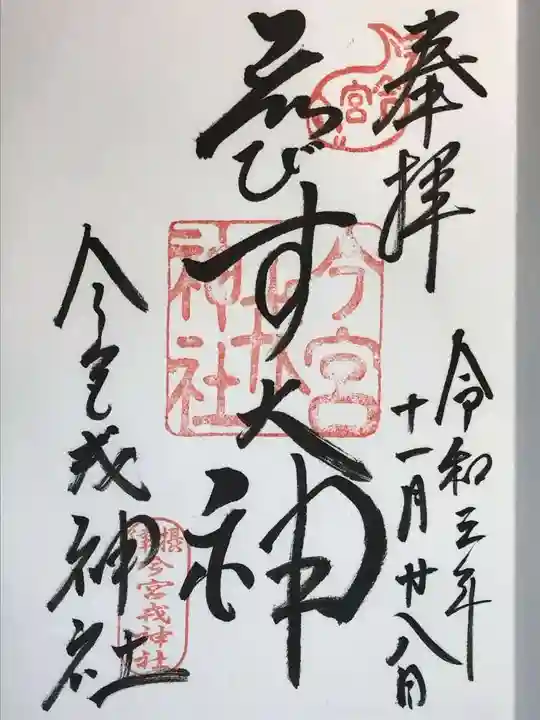 奉拝
令和三年
十一月廿八日
ゑびす大神
今宮戎神社
今宮戎神社
摂津今宮戎神社